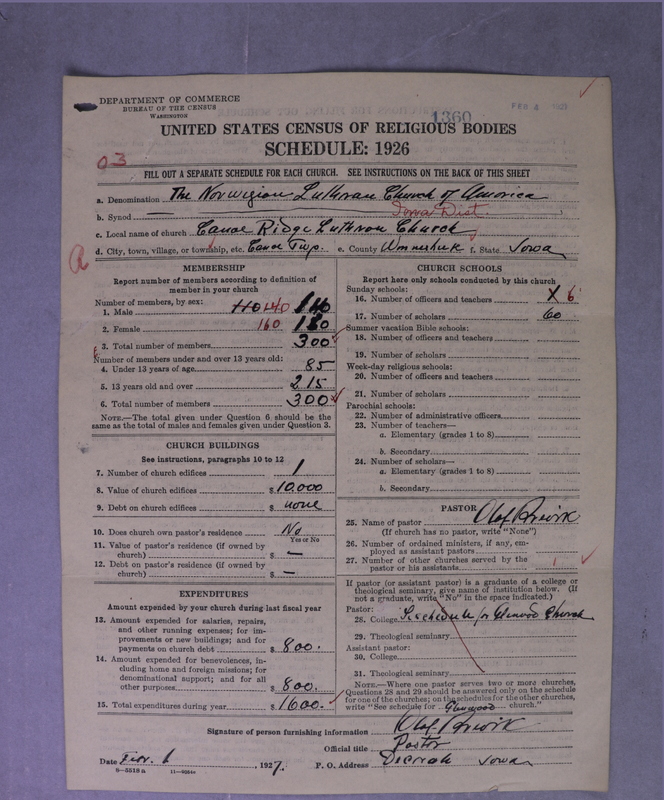 DEPARTMENT OF COMMERCE
BUREAU OF THE CENSUS
WASHINGTON
1360
FEB 4 1927
UNITED STATES CENSUS OF RELIGIOUS BODIES
SCHEDULE: 1926
03
FILL OUT A SEPARATE SCHEDULE FOR EACH CHURCH. SEE INSTRUCTIONS ON THE BACK OF THIS SHEET
a. Denomination The Norwegian Lutheran Church of America
b. Synod Iowa Dist.
c. Local name of church Canoe Ridge Lutheran Church
d. City, town, village, or township, etc. Canoe Twp. e. County Winneshiek f. State Iowa
MEMBERSHIP
Report number of members according to definition of member in your church
Number of members, by sex:
1. Male 110 140 140
2. Female 160 160
3. Total number of members 300
Number of members under and over 13 years old:
4. Under 13 years of age 85
5. 13 years old and over 215
6. Total number of members 300
NOTE.—The total given under Question 6 should be the
same as the total of males and females given under Question 3.
CHURCH BUILDINGS
See instructions, paragraphs 10 to 12
7. Number of church edifices 1
8. Value of church edifices $ 10,000
9. Debt on church edifices $ none
10. Does church own pastor's residence No
Yes or No
11. Value of pastor's residence (if owned by
church) $ —
12. Debt on pastor's residence (if owned by
church) $ —
EXPENDITURES
Amount expended by your church during last fiscal year
13. Amount expended for salaries, repairs,
and other running expenses; for im-
provements or new buildings; and for
payments on church debt $ 800.
14. Amount expended for benevolences, in-
cluding home and foreign missions; for
denominational support; and for all
other purposes $ 800.
15. Total expenditures during year $ 1600.
CHURCH SCHOOLS
Report here only schools conducted by this church
Sunday schools:
16. Number of officers and teachers X 6
17. Number of scholars 60
Summer vacation Bible schools:
18. Number of officers and teachers
19. Number of scholars
Week-day religious schools:
20. Number of officers and teachers
21. Number of scholars
Parochial schools:
22. Number of administrative officers
23. Number of teachers—
a. Elementary (grades 1 to 8)
b. Secondary
24. Number of scholars—
a. Elementary (grades 1 to 8)
b. Secondary
PASTOR
25. Name of pastor Olaf
(If church has no pastor, write "None")
26. Number of ordained ministers, if any, em-
ployed as assistant pastors
27. Number of other churches served by the
pastor or his assistants 1
If pastor (or assistant pastor) is a graduate of a college or
theological seminary, give name of institution below. (If
not a graduate, write "No" in the space indicated.)
Pastor:
28. College See schedule for Glenwood Church
29. Theological seminary
Assistant pastor:
30. College
31. Theological seminary
NOTE.—Where one pastor serves two or more churches,
Questions 28 and 29 should be answered only on the schedule
for one of the churches; on the schedules for the other churches,
write "See schedule for Glenwood church."
Signature of person furnishing information Olaf
Official title Pastor
Date 1927. P. O. Address Decorah Iowa
8-5518a